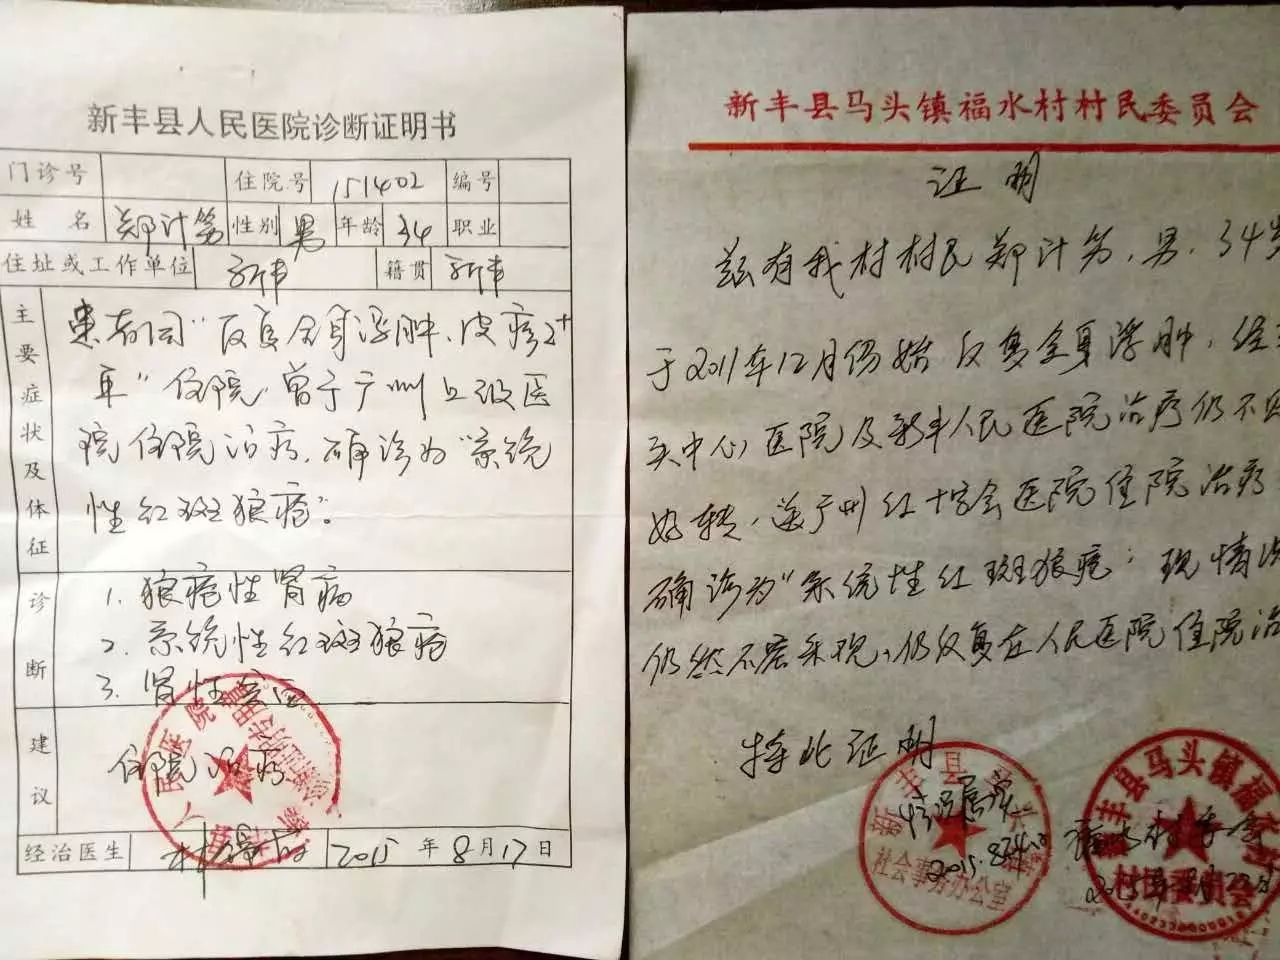 新丰县人民医院诊断证明书
门诊号 住院号 151402 编号
姓名 郑计第 性别 男 年龄 34 职业
住址或工作单位 新丰 籍贯 新丰
主要症状及体征
患者因“反复全身浮肿、皮疹2+
年”住院，曾于广州上级医
院住院治疗，确诊为“系统
性红斑狼疮”。
诊断
1. 狼疮性肾病
2. 系统性红斑狼疮
3. 肾性
建议
住院治疗
经治医生 2015年8月17日
新丰县马头镇福水村村民委员会
证明
兹有我村村民郑计第，男，34岁
于2011年12月份始反复全身浮肿，经
头中心医院及新丰人民医院治疗仍不
好转，送广州红十字会医院住院治疗
确诊为“系统性红斑狼疮”现情况
仍然不容乐观，仍反复在人民医院住院治
特此证明
情况属实
2015.8
新丰县马头
社会事务办公室
丰县马头镇福
村民委员会